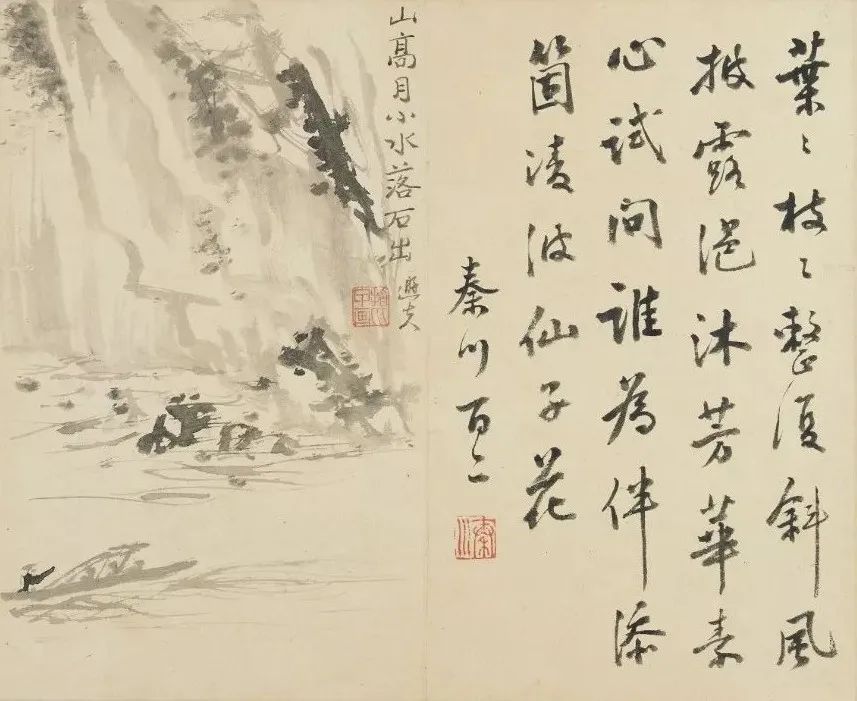 葉〻枝〻整復斜風
披露浥沐芳華素
心試問誰為伴添
箇凌波仙子花
秦川百二
秦川
山高月小水落石出